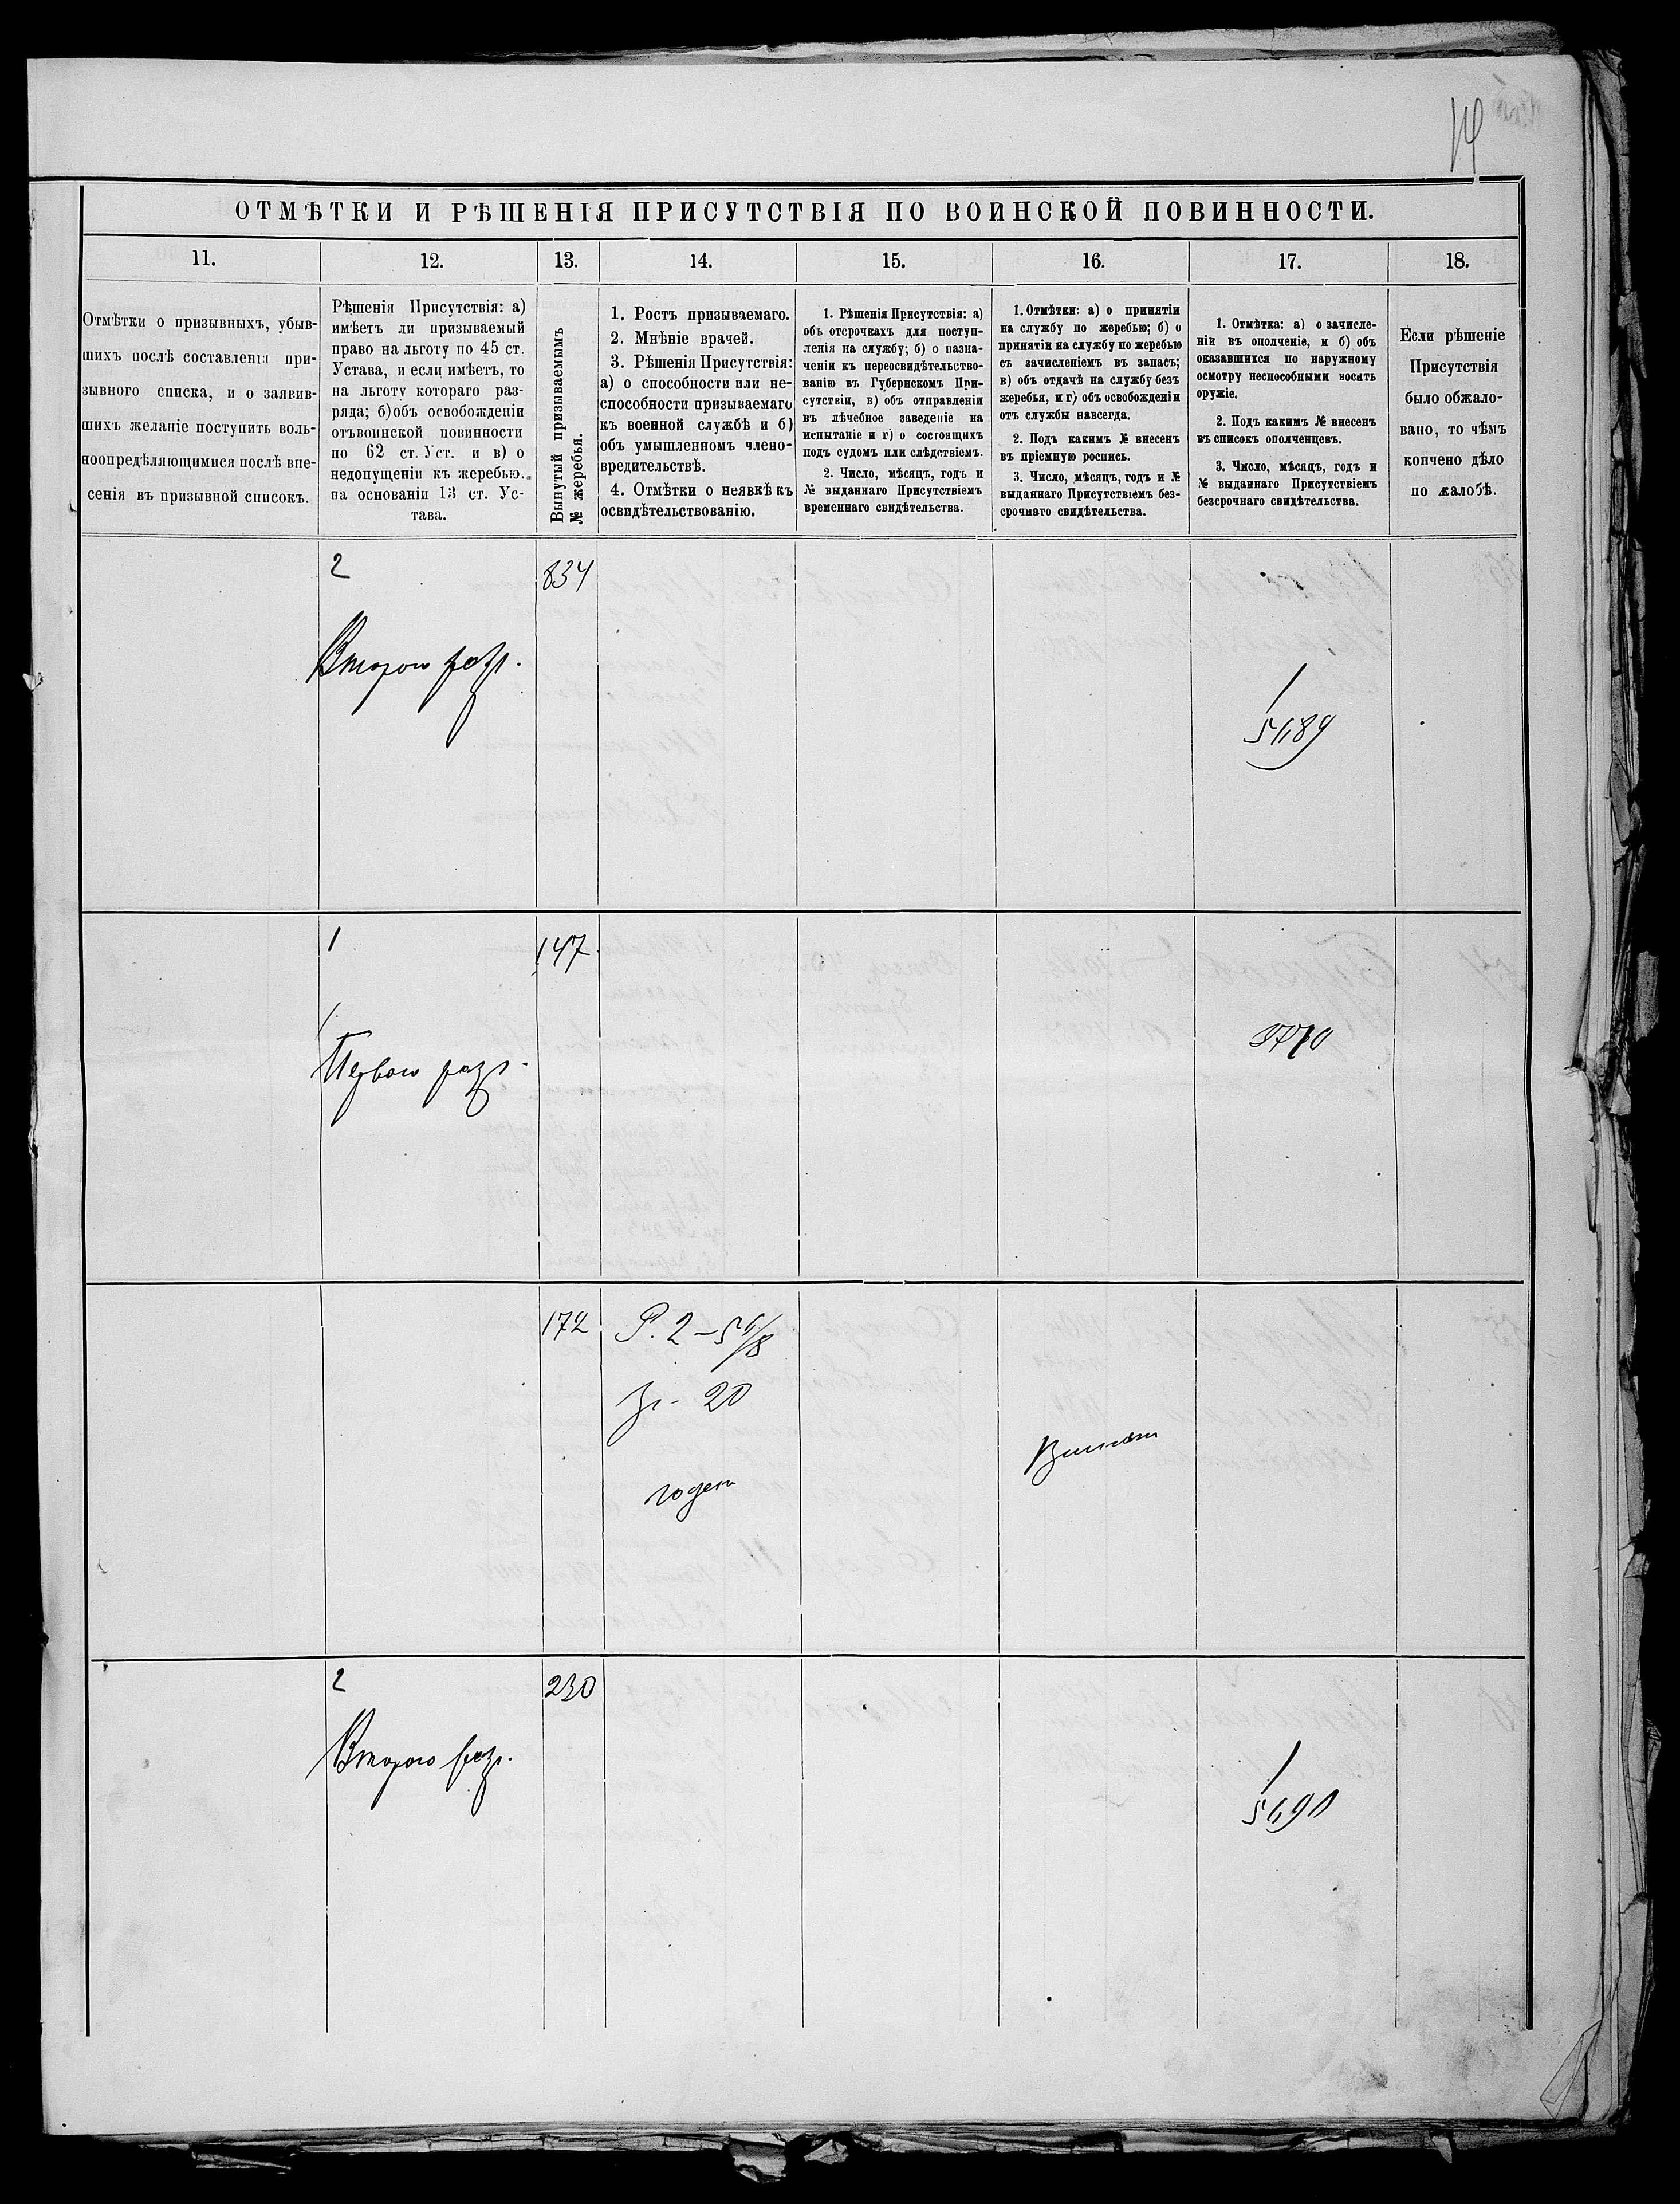 14
ОТМѢТКИ И РѢШЕНІЯ ПРИСУТСТВІЯ ПО ВОИНСКОЙ ПОВИННОСТИ.
11.
12.
13.
14.
15.
16.
17.
18.
Отмѣтки о призывныхъ, убыв-
шихъ послѣ составленія при-
зывного списка, и о заявив-
шихъ желаніе поступить воль-
ноопредѣляющимися послѣ вне-
сенія въ призывной списокъ.
Рѣшенія Присутствія: а)
имѣетъ ли призываемый
право на льготу по 45 ст.
Устава, и если имѣетъ, то
на льготу котораго раз-
ряда; б) объ освобожденіи
отъ воинской повинности
по 62 ст. Уст. и в) о
недопущеніи къ жеребью.
на основаніи 13 ст. Ус-
тава.
Вынутый призываемымъ
№ жеребья.
1. Ростъ призываемаго.
2. Мнѣніе врачей.
3. Рѣшенія Присутствія:
а) о способности или не-
способности призываемаго
къ военной службѣ и б)
объ умышленномъ члено-
вредительствѣ.
4. Отмѣтки о неявкѣ къ
освидѣтельствованію.
1. Рѣшенія Присутствія: а)
объ отсрочкахъ для поступ-
ленія на службу; б) о назна-
ченіи къ переосвидѣтельство-
ванію въ Губернскомъ При-
сутствіи, в) объ отправленіи
въ лѣчебное заведеніе на
испытаніе и г) о состоящихъ
подъ судомъ или слѣдствіемъ.
2. Число, мѣсяцъ, годъ и
№ выданнаго Присутствіемъ
временнаго свидѣтельства.
1. Отмѣтки: а) о принятіи
на службу по жеребью; б) о
принятіи на службу по жеребью
съ зачисленіемъ въ запасъ;
в) объ отдачѣ на службу безъ
жеребья, и г) объ освобожденіи
отъ службы навсегда.
2. Подъ какимъ № внесенъ
въ пріемную роспись.
3. Число, мѣсяцъ, годъ и №
выданнаго Присутствіемъ без-
срочнаго свидѣтельства.
1. Отмѣтка: а) о зачисле-
ніи въ ополченіе, и б) объ
оказавшихся по наружному
осмотру неспособными носить
оружіе.
2. Подъ какимъ № внесенъ
въ списокъ ополченцевъ.
3. Число, мѣсяцъ, годъ и
№ выданнаго Присутствіемъ
безсрочнаго свидѣтельства.
Если рѣшеніе
Присутствія
было обжало-
вано, то чѣмъ
кончено дѣло
по жалобѣ.
2
834
Второго разр.
1
147
Первого разр.
3770
172
Р. 2–5 6/8
Гр. 20
годенъ
2
230
Второго разр.